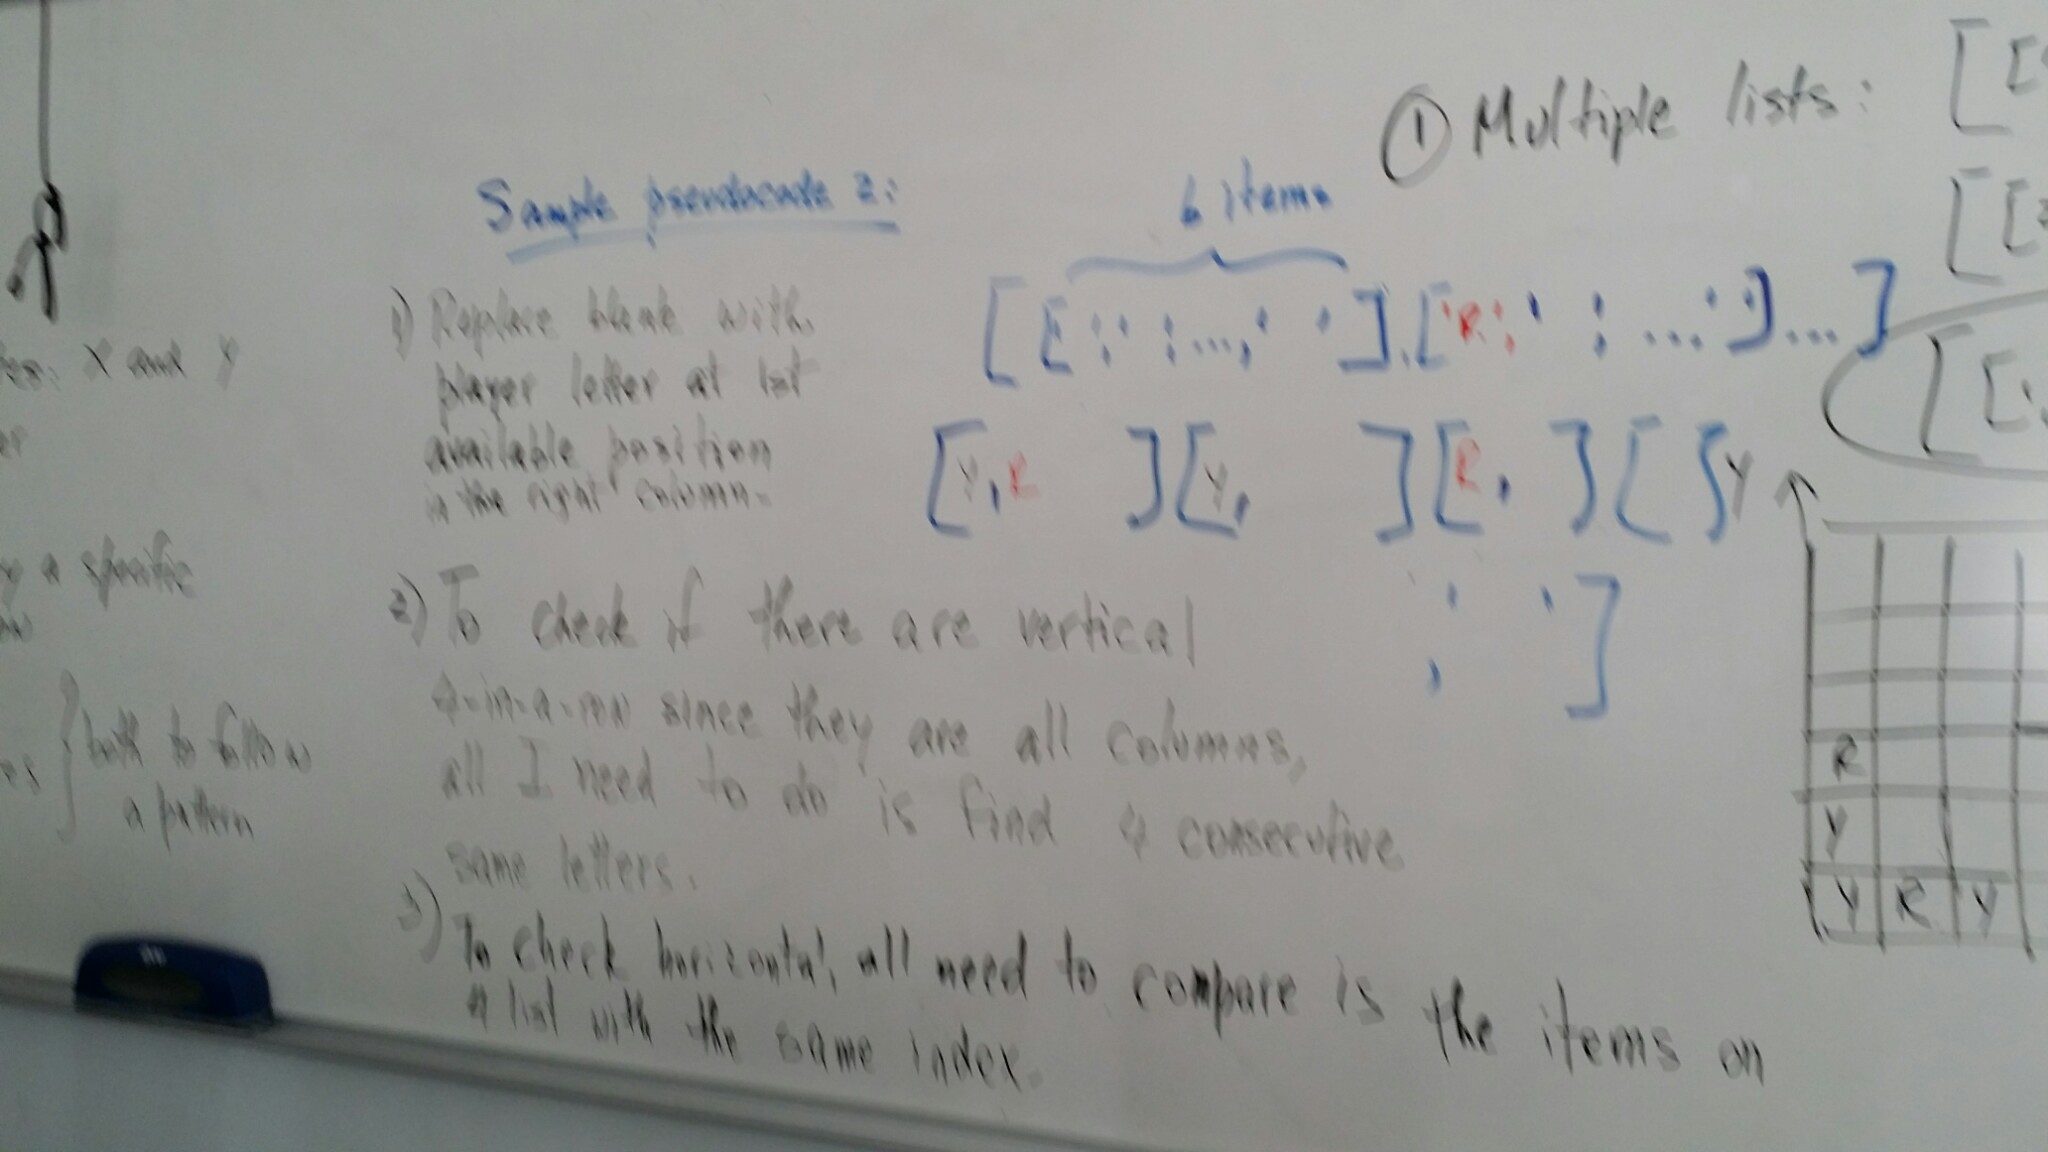 Sample pseudocode 2:
1) Replace blank with
player letter at 1st
available position
in the right column.
2) To check if there are vertical
4-in-a-row since they are all columns,
all I need to do is find 4 consecutive
same letters.
3) To check horizontal, all need to compare is the items on
4 list with the same index.
6 items
[[' ',' '...,' '],['R',' ',...' ']...]
[Y,R ][Y, ][R, ][ ]
' , ' ]
① Multiple lists:
[[
[[
[[
X and Y
a specific
both to follow
a pattern
Y
R
Y
Y R Y